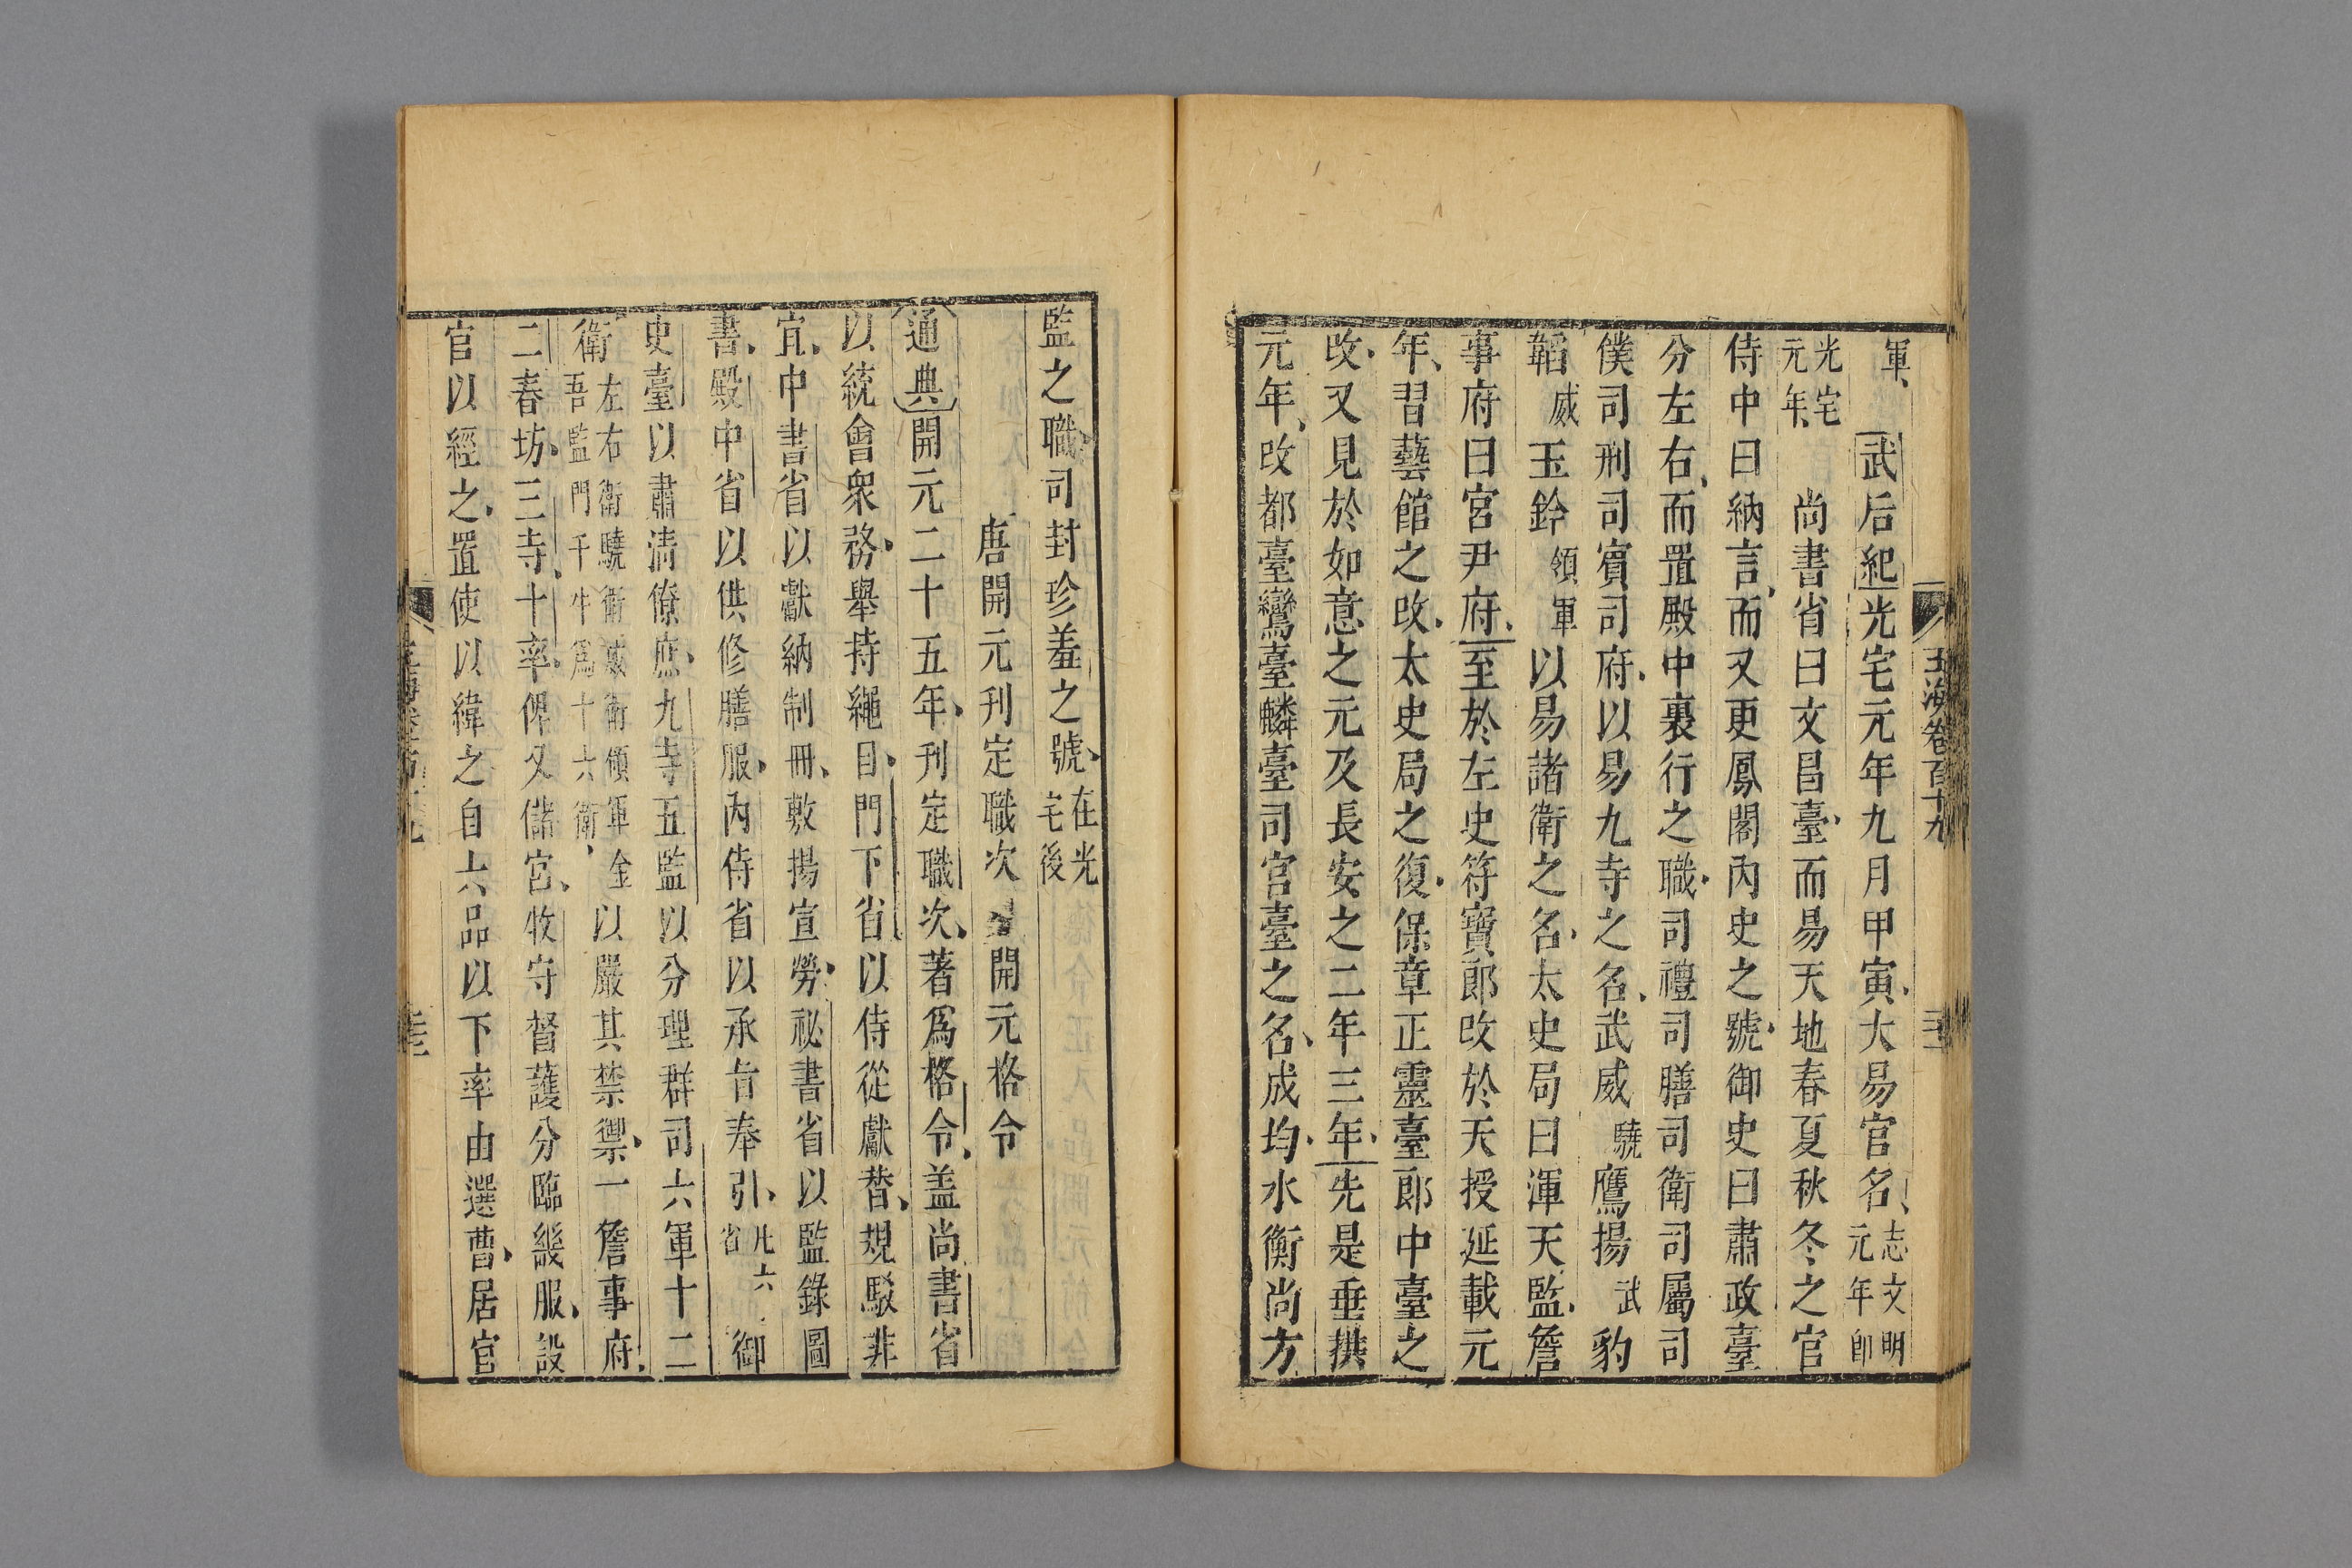 軍 武后紀光宅元年九月甲寅大易官名志文明元年即
光宅元年 尚書省曰文昌臺而易天地春夏秋冬之官
侍中曰納言而又更鳳閣內史之號御史曰肅政臺
分左右而置殿中裏行之職司禮司膳司衛司屬司
僕司刑司賓司府以易九寺之名武威驍鷹揚武豹
韜威玉鈐領軍以易諸衛之名太史局曰渾天監詹
事府曰宮尹府至於左史符寶郎改於天授延載元
年習藝館之改太史局之復保章正靈臺郎中臺之
改又見於如意之元及長安之二年三年先是垂拱
元年改都臺鸞臺麟臺司宮臺之名成均水衡尚方
玉海卷百十九
監之職司封珍羞之號在光宅後
唐開元刊定職次 開元格令
通典開元二十五年刊定職次著爲格令盖尚書省
以統會衆務舉持繩目門下省以侍從獻替規駁非
宜中書省以獻納制冊敷揚宣勞祕書省以監錄圖
書殿中省以供修膳服內侍省以承旨奉引凡六省御
史臺以肅清僚庶九寺五監以分理群司六軍十二
衛左右衛驍衛威衛領軍金吾監門千牛爲十六衛以嚴其禁禦一詹事府
二春坊三寺十率俾乂儲宮牧守督護分臨畿服設
官以經之置使以緯之自六品以下率由選曹居官